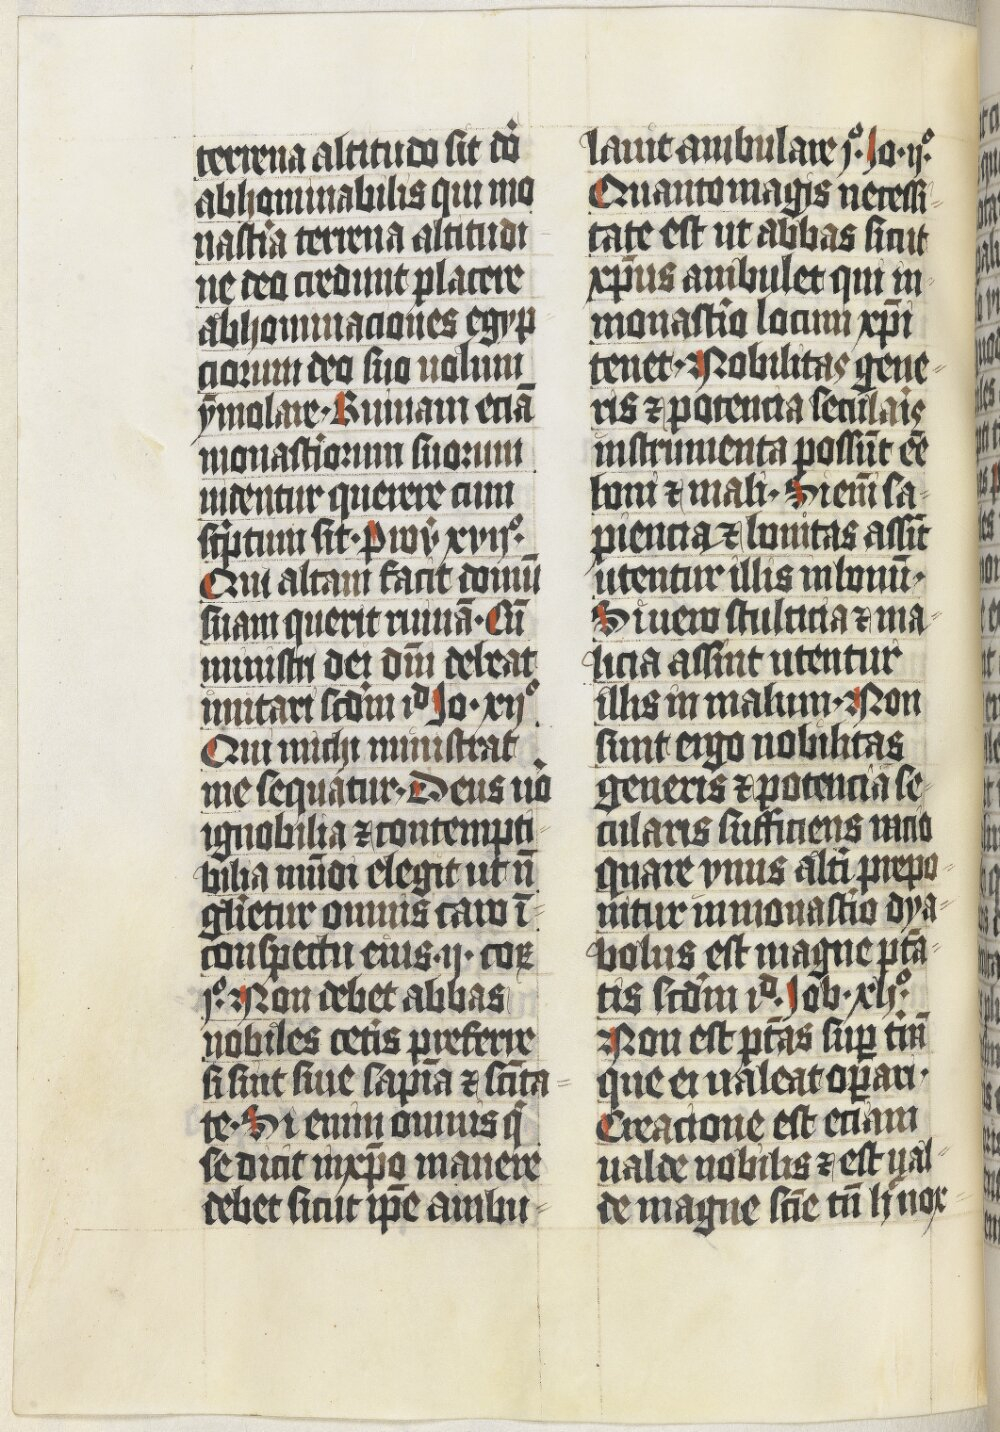 terrena altitudo sit dō
abhominabilis qui mo
nastīa terrena altitudi
ne deo credunt placere
abhominaciones egyp
ciorum deo suo uolunt
ymolare. Ruinam eciā
monastīorum suorum
uidentur querere cum
scptum sit. Prov̄ xvijº.
Qui altam facit domū
suam querit ruinā. Cū
ministri dei dn̄m debeat
imitari scdm id Jo. xijº
Qui michi ministrat
me sequatur. Deus uō
ignobilia ⁊ contempti
bilia mūdi elegit ut n̄
glīetur omnis caro ī
conspectu eius. ij. coꝝ
jº. Non debet abbas
nobiles cetis preferre
si sint siue sapīa ⁊ scīta
te. Si enim omnis q̄
se dicit in xp̄o manere
debet sicut ip̄e ambu
lauit ambulare jº. Jo. ijº.
Quanto magis necessi
tate est ut abbas sicut
xp̄us ambulet qui in
monastīo locum xp̄i
tenet. Nobilitas gene
ris ⁊ potencia seculaīs
instrumenta possūt eē
boni ⁊ mali. Si eīm sa
piencia ⁊ bonitas assīt
utentur illis in bonū.
Si uero stulticia ⁊ ma
licia assint utentur
illis in malum. Non
sunt ergo nobilitas
generis ⁊ potencia se
cularis sufficiens racio
quare vnus altī prepo
nitur in monastīo dya
bolus est magne ptā
tis scdm id. Job. xljº.
Non est ptās suꝑ tr̄ā
que ei ualeat oꝑari.
Creacione est eciam
ualde nobilis ⁊ est ual
de magne scīe tn̄ h nox